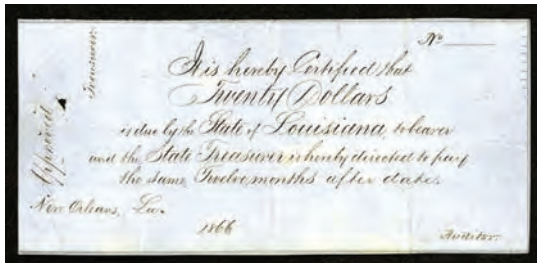 No
It is hereby Certified that
Twenty Dollars
is due by the State of Louisiana, to bearer
and the State Treasurer is hereby directed to pay
the same, Twelve months after date.
New Orleans, La.
1866
Auditor.
Approved
Treasurer.